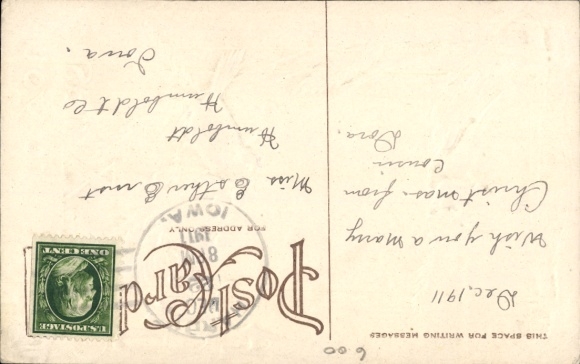 THIS SPACE FOR WRITING MESSAGES
Dec, 1911
Wish you a Marry
Christmas. from
Cousin
Dora.
Post Card
FOR ADDRESS ONLY
U.S. POSTAGE
ONE CENT
DEC
8
1911
IOWA.
Miss Esther Ernst
Humboldt
Humboldt Co
Iowa.
600